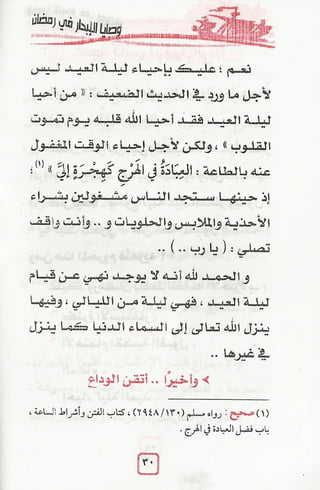 وصايا للإبحار في رمضان
نعم ؛ عليك بإحياء ليلة العيد ليس
لأجل ما ورد في الحديث الضعيف : « من أحيا
ليلة العيد فقد أحيا الله قلبه يوم تموت
القلوب » ، ولكن لأجل إحياء الوقت المغفول
عنه بالطاعة : العِبَادَةُ فِي الهَرْجِ كَهِجْرَةٍ إِلَيَّ » (١) ؛
إذ حينها ستجد الناس مشغولين بشراء
الأحذية والملابس والحلويات و .. وأنت واقف
تصلي : ( يا رب .. ) ..
و الحمد لله أنه لا يوجد نهي عن قيام
ليلة العيد ، فهي ليلة من الليالي ، وفيها
ينزل الله تعالى إلى السماء الدنيا كما ينزل
في غيرها ..
وأخيرًا .. أتقن الوداع
(١) صحيح : رواه مسلم (٢٩٤٨/١٣٠) ، كتاب الفتن وأشراط الساعة ،
باب فضل العبادة في الهرج .
٣٠